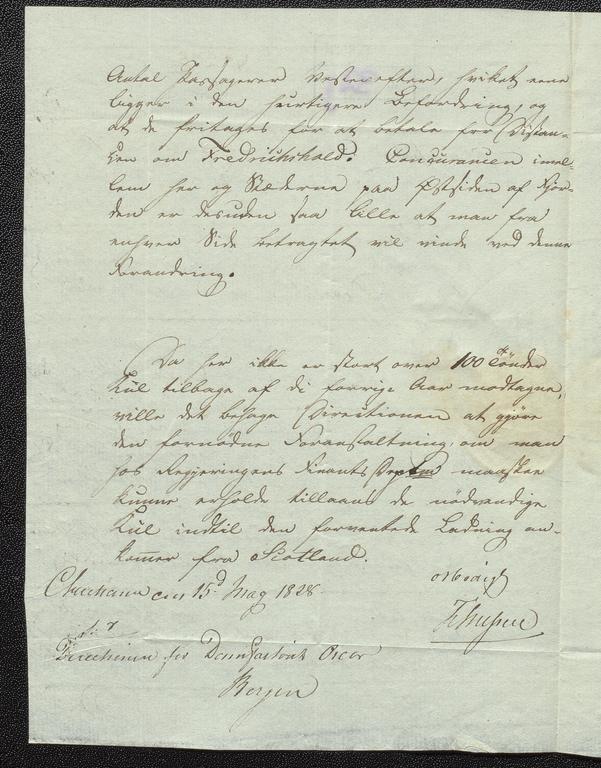 Antal Passagerer derefter, hvilket ene
ligger i den hurtigere Befordring, og
at de fritages for at betale for Distan-
cen om Fredrikshald. Concurancen imel-
lem her og Stæderne paa Østsiden af Fjor-
den er desuden saa lille at man fra
enhver Side betragtet vil vinde ved denne
Forandring.
Da her ikke er stort over 100 Tønder
Kul tilbage af de forrige Aar modtagne,
ville det behage Directionen at gjøre
den fornødne Foranstaltning, om man
hos Regjeringens Finants Deptm maaskee
kunne erholde tillaans de nødvendige
Kul indtil den forventede Ladning an-
kommer fra Scotland.
den 15d May 1828
ærbødigst
Directionen for Dampfartøiet Oscar
Bergen